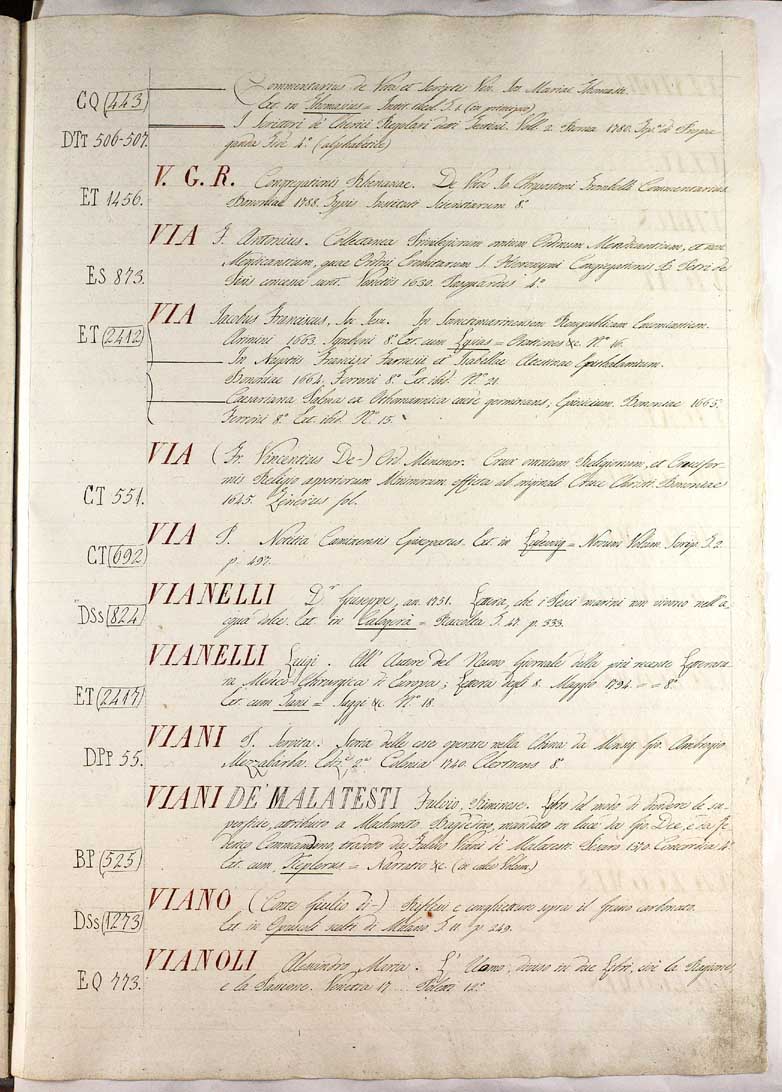 CQ (443) Commentarius de Vita et Scriptis Ven. Jos. Mariae Thomasii.
Ext. in Thomasius = Instit. theol. T. 1. (in principio)
DTt 506-507. I Scrittori de' Cherici Regolari detti Teatini. Voll. 2. Roma 1780. Tip.a di Propa-
ganda Fide 4.o (alphabetice)
V. G. R. Congregationis Rhenanae. De Vita Jo. Chrysostomi Trombelli Commentarius
ET 1456. Bononiae 1788. Typis Instituti Scientiarum 8.o
VIA F. Antonius. Collectanea Privilegiorum omnium Ordinum Mendicantium, et non
Mendicantium, quae Ordini Eremitarum S. Hieronymi Congregationis B. Petri de
ES 873. Pisis concessa sunt. Venetiis 1630. 4.o
VIA Jacobus Franciscus, Soc. Jesu. In Sanctmarinensem Rempublicam Enconiasticum.
ET (2412) Arimini 1663. Symbeni 8.o Ext. cum = Orationes &c. N.o 16.
In Nuptiis Francisci Farnesii et Isabellae Atestinae Epithalamium.
Bononiae 1664. Ferroni 8.o Ext. ibid. N.o 21.
Caesariana Palma ex Othomannica caede germinans, Epinicium. Bononiae 1665.
Ferroni 8.o Ext. ibid. N.o 15.
VIA (Fr. Vincentius De-) Ord. Minimor. Crux omnium Religionum, et Crucifor-
mis Religio asperiorum Minimorum efficta ab originali Cruce Christi. Bononiae
CT 551. 1645. fol.
VIA P. Notitia Caminensis Episcopatus. Ext. in Ludewig = Novum Volum. Scrip. T. 2.
CT (692) p. 497.
VIANELLI D.r Giuseppe, an. 1751. Lettera, che i Pesci marini non vivono nell'a-
DSs (824) qua dolce. Ext. in Calogerà = Raccolta T. 47. p. 333.
VIANELLI Luigi. All'Autore del Nuovo Giornale della più recente Letteratu-
ra Medico-Chirurgica di Europa; Lettera degli 8. Maggio 1794. = = 8.o
ET (2417) Ext. cum = Saggi &c. N.o 18.
VIANI P. Servita. Storia delle cose operate nella China da Monsig. Gio. Ambrogio
DPp 55. Mezzabarba. Ediz.e 2.a Colonia 1740. 8.o
VIANI DE' MALATESTI Fulvio, Riminese. Libro del modo di dividere le su-
perficie, attribuito a Machometo Bagdedino, mandato in luce da Gio. Dee, e da Fe-
derico Commandino, tradotto da Fulvio Viani de' Malatesti. Pesaro 1570. Concordia 4.o
BP (525) Ext. cum Keplerus = Narratio &c. (in calce Volum.)
VIANO (Conte Giulio di-) Riflessi e conghietture sopra il Grano carbonato.
DSs (1273) Ext. in Opuscoli scelti di Milano T. 11. p. 249.
VIANOLI Alessandro Maria. L'Uomo, diviso in due Libri, cioè la Ragione,
EQ 773. e la Passione. Venetia 17 Poletti 12.o